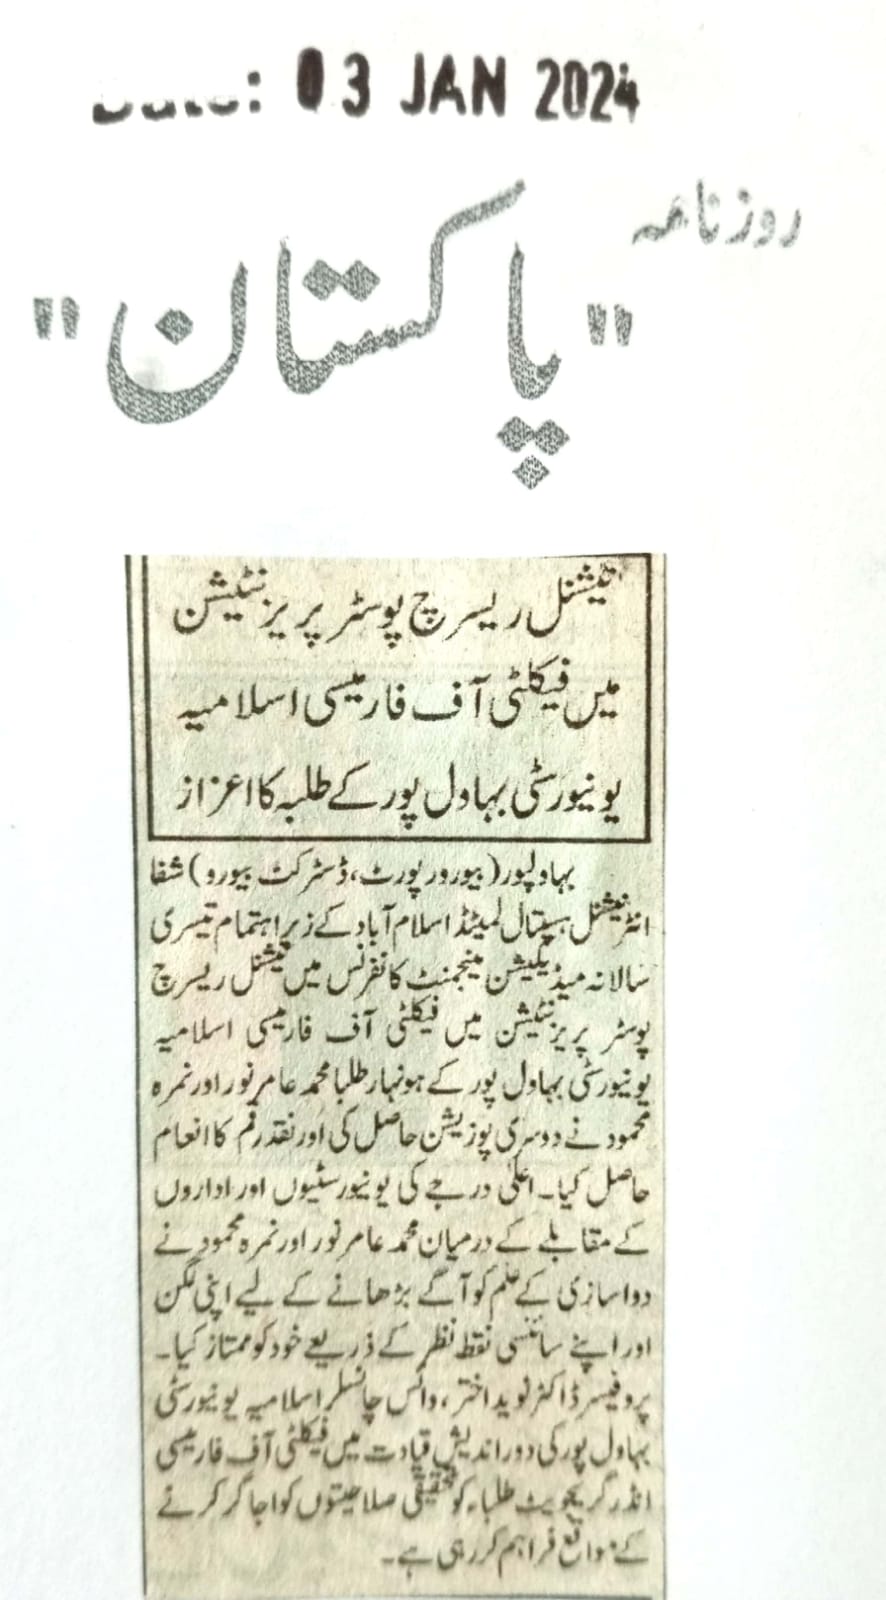 Date: 03 JAN 2024
روزنامہ
"پاکستان"
نیشنل ریسرچ پوسٹر پریزنٹیشن
میں فیکلٹی آف فارمیسی اسلامیہ
یونیورسٹی بہاول پور کے طلبہ کا اعزاز
بہاولپور (بیورورپورٹ، ڈسٹرکٹ بیورو) شفا
انٹرنیشنل ہسپتال لمیٹڈ اسلام آباد کے زیراہتمام تیسری
سالانہ میڈیکیشن مینجمنٹ کانفرنس میں نیشنل ریسرچ
پوسٹر پریزنٹیشن میں فیکلٹی آف فارمیسی اسلامیہ
یونیورسٹی بہاول پور کے ہونہار طلبا محمد عامر نور اور نمرہ
محمود نے دوسری پوزیشن حاصل کی اور نقد رقم کا انعام
حاصل کیا۔ اعلیٰ درجے کی یونیورسٹیوں اور اداروں
کے مقابلے کے درمیان محمد عامر نور اور نمرہ محمود نے
دواسازی کے علم کو آگے بڑھانے کے لیے اپنی لگن
اور اپنے سائنسی نقطہ نظر کے ذریعے خود کو ممتاز کیا۔
پروفیسر ڈاکٹر نوید اختر، وائس چانسلر اسلامیہ یونیورسٹی
بہاول پور کی دور اندیش قیادت میں فیکلٹی آف فارمیسی
انڈر گریجویٹ طلباء کو تحقیقی صلاحیتوں کو اجاگر کرنے
کے مواقع فراہم کر رہی ہے۔